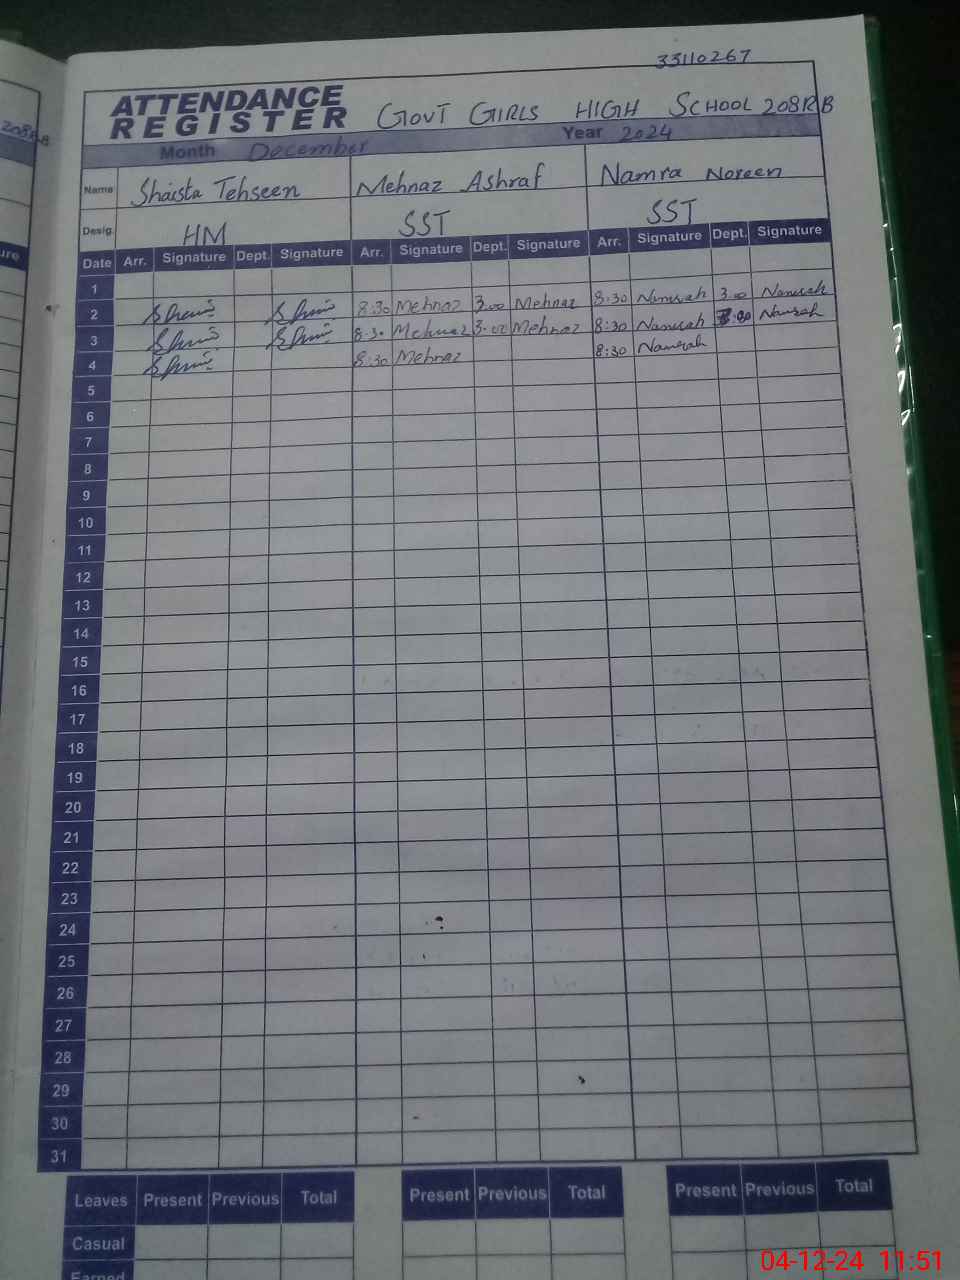 33110267
ATTENDANCE
REGISTER GOVT GIRLS HIGH SCHOOL 208RB
Month December Year 2024
Name Shaista Tehseen Mehnaz Ashraf Namra Noreen
Desig. HM SST SST
Date Arr. Signature Dept. Signature Arr. Signature Dept. Signature Arr. Signature Dept. Signature
1
2 8:30 Mehnaz 3:00 Mehnaz 8:30 Namrah 3:00 Namrah
3 8:30 Mehnaz 3:00 Mehnaz 8:30 Namrah Namrah
4 8:30 Mehnaz 8:30 Namrah
5
6
7
8
9
10
11
12
13
14
15
16
17
18
19
20
21
22
23
24
25
26
27
28
29
30
31
Leaves Present Previous Total Present Previous Total Present Previous Total
Casual
Earned
04-12-24 11:51